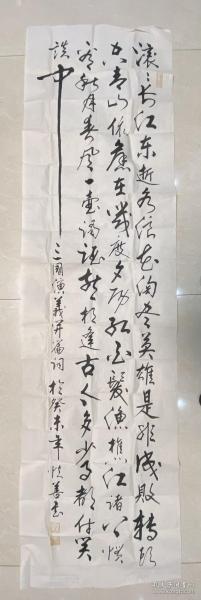 滚〻长江东逝水浪花淘尽英雄是非成败转头
空青山依舊在幾度夕阳红白髮漁樵江渚上慣
看秋月春风一壶浊酒喜相逢古今多少事都付笑
谈中
三國演義开篇词 於癸未年 善书